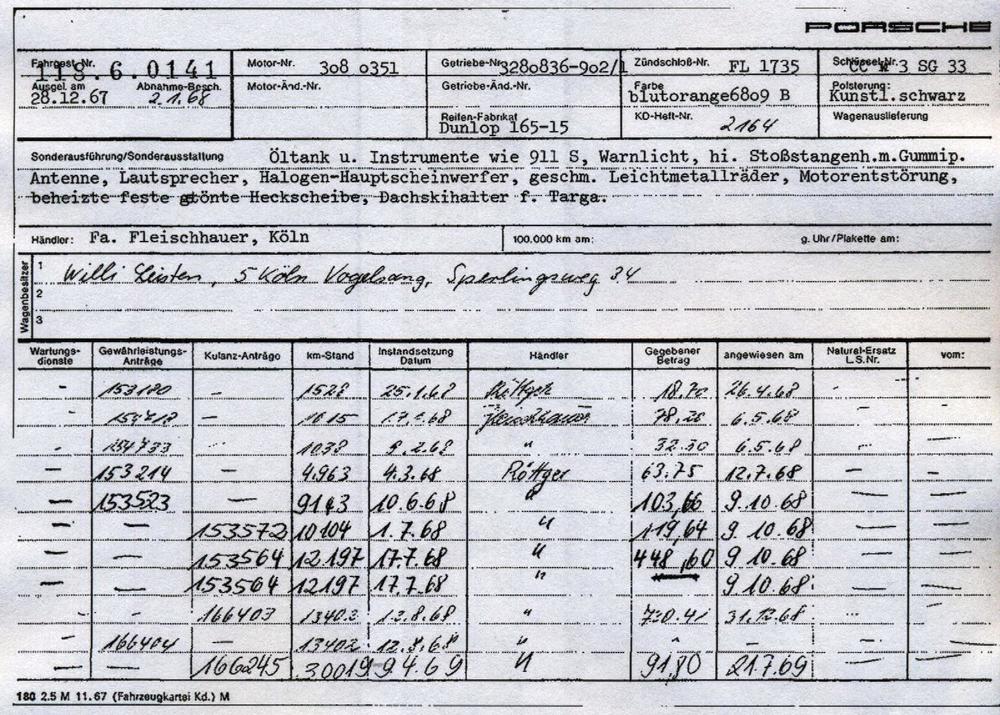 PORSCHE
Fahrgest.-Nr. Motor-Nr. 308 0351 Getriebe-Nr. 3280836-902/1 Zündschloß-Nr. FL 1735 Schlüssel-Nr. SG 33
118.6.0141
Ausgel. am Abnahme-Besch. Motor-Änd.-Nr. Getriebe-Änd.-Nr. Farbe Polsterung:
28.12.67 2.1.68 blutorange6809 B Kunstl.schwarz
Reifen-Fabrikat KD-Heft-Nr. 2164 Wagenauslieferung
Dunlop 165-15
Sonderausführung/Sonderausstattung Öltank u. Instrumente wie 911 S, Warnlicht, hi. Stoßstangenh.m.Gummip.
Antenne, Lautsprecher, Halogen-Hauptscheinwerfer, geschm. Leichtmetallräder, Motorentstörung,
beheizte feste gtönte Heckscheibe, Dachskihalter f. Targa.
Händler: Fa. Fleischhauer, Köln 100.000 km am: g. Uhr/Plakette am:
Wagenbesitzer
1 Willi Leisten, 5 Köln Vogelsang, Sperlingsweg 34
2
3
Wartungsdienste Gewährleistungs-Anträge Kulanz-Anträge km-Stand Instandsetzung Datum Händler Gegebener Betrag angewiesen am Natural-Ersatz L.S.Nr. vom:
- 153180 - 1528 25.1.68 Röttger 18.70 26.4.68 - -
- - Fleischhauer 78.20 6.5.68 - -
- 1038 9.2.68 " 32.30 6.5.68 - -
- 153214 - 4.963 4.3.68 Röttger 63.75 12.7.68 - -
- 153523 - 9143 10.6.68 " 103,66 9.10.68 - -
- - 153572 10104 1.7.68 " 119,64 9.10.68 - -
- - 153564 12.197 17.7.68 " 448,60 9.10.68 - -
- - 153564 12197 17.7.68 " 9.10.68 - -
- - 166403 13402 " 31.12.68 - -
- 166404 - 13402 " - - - -
- - 166245 30019 9.4.69 " 91,80 21.7.69 - -
180 2.5 M 11.67 (Fahrzeugkartei Kd.) M